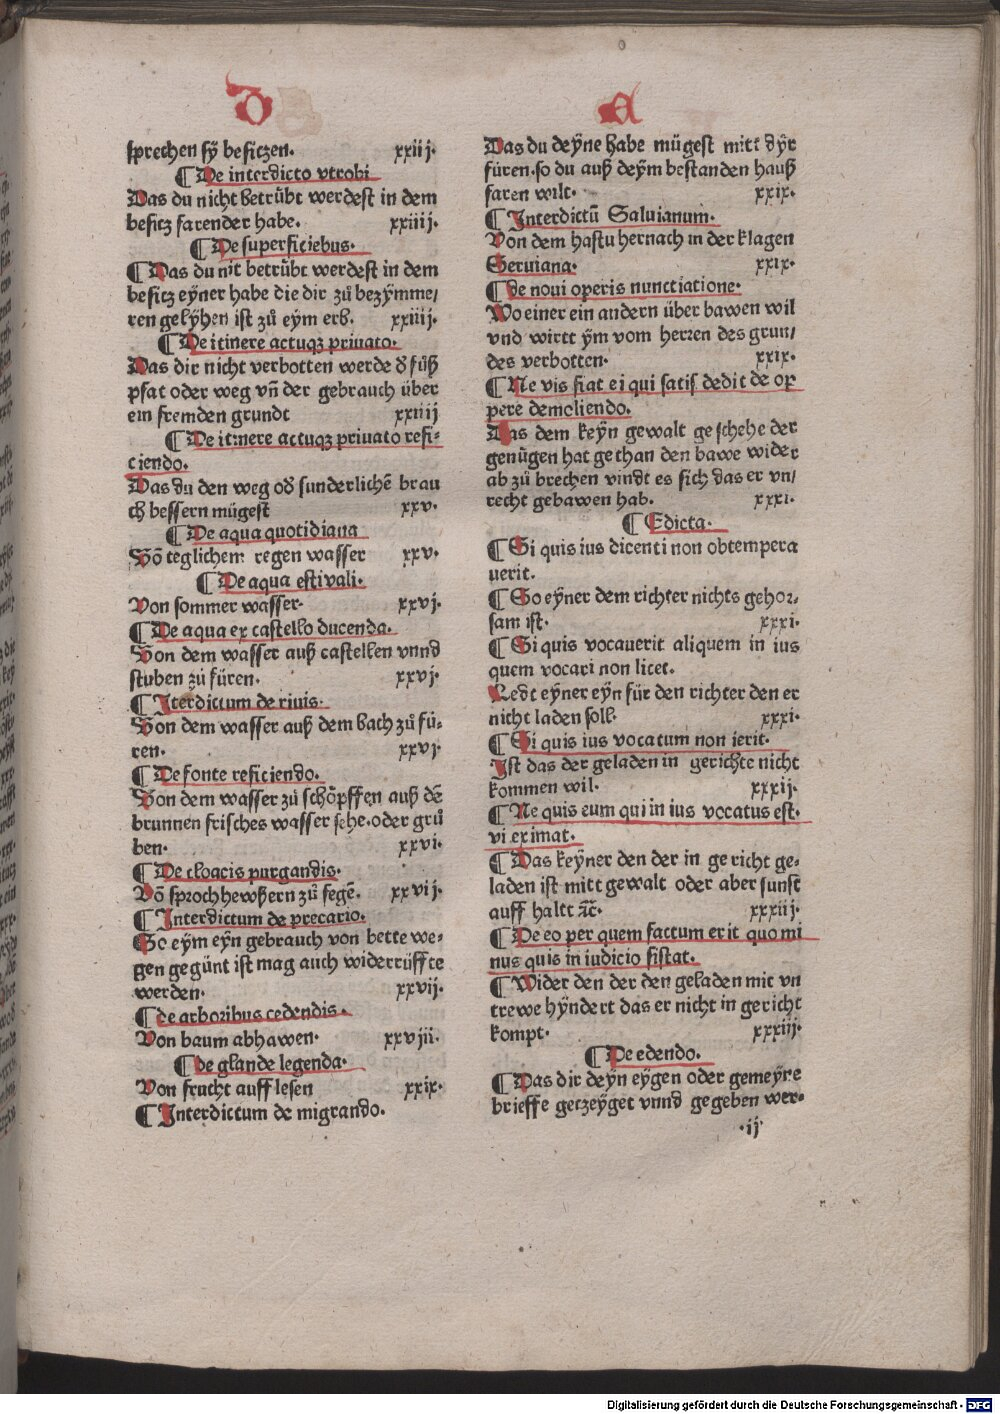 D
A
sprechen sÿ besitzen. xxiij.
¶ De interdicto vtrobi
Das du nicht betrübt werdest in dem
besitz farender habe. xxiiij.
¶ De superficiebus.
¶ Das du nit betrübt werdest in dem
besitz eÿner habe die dir zů bezÿmme/
ren gelÿhen ist zů eÿm erb. xxiiij.
¶ De itinere actuqꝫ priuato.
Das dir nicht verbotten werde ð fůß
pfat oder weg vñ der gebrauch über
ein fremden grundt xxiiij
¶ De itinere actuqꝫ priuato refi-
ciendo.
Das du den weg oð sunderlichē brau
ch bessern mügest xxv.
¶ De aqua quotidiana
Võ teglichem regen wasser xxv.
¶ De aqua estiuali.
Von sommer wasser. xxvj.
¶ De aqua ex castello ducenda.
Von dem wasser auß castellen vnnd
stuben zů füren. xxvj.
¶ Iterdictum de riuis.
Von dem wasser auß dem bach zů fü-
ren. xxvj.
¶ De fonte reficiendo.
Von dem wasser zů schöpffen auß dē
brunnen frisches wasser sehe.oder grů
ben. xxvi.
¶ De cloacis purgandis.
Võ sprochhewßern zů fegē. xxvij.
¶ Interdictum de precario.
So eÿm eÿn gebrauch von bette we-
gen gegünt ist mag auch widerrüffte
werden. xxvij.
¶ de arboribus cedendis.
Von baum abhawen. xxviii.
¶ de glande legenda.
Von frucht auff lesen xxix.
¶ Interdictum de migrando.
Das du deÿne habe mügest mitt dÿr
füren.so du auß deÿm bestanden hauß
faren wilt. xxix.
¶ Interdictū Saluianum.
Von dem hastu hernach in der klagen
Seruiana. xxix.
¶ de noui operis nuncciatione.
Wo einer ein andern über bawen wil
vnd wirtt ÿm vom herren des grun/
des verbotten. xxix.
¶ Ne vis fiat ei qui satis dedit de op
pere demoliendo.
Das dem keÿn gewalt geschehe der
genügen hat gethan den bawe wider
ab zů brechen vindt es sich das er vn/
recht gebawen hab. xxxi.
¶ Edicta.
¶ Si quis ius dicenti non obtempera
uerit.
¶ So eÿner dem richter nichts gehor-
sam ist. xxxi.
¶ Si quis vocauerit aliquem in ius
quem vocari non licet.
Ledt eÿner eÿn für den richter den er
nicht laden soll. xxxi.
¶ Si quis ius vocatum non ierit.
Ist das der geladen in gerichte nicht
kommen wil. xxxij.
¶ Ne quis eum qui in ius vocatus est.
vi eximat.
¶ Das keÿner den der in gericht ge-
laden ist mitt gewalt oder aber sunst
auff haltt ⁊c̄. xxxiij.
¶ De eo per quem factum erit quo mi
nus quis in iudicio sistat.
¶ Wider den der den geladen mit vn
trewe hÿndert das er nicht in gericht
kompt. xxxiij.
¶ De edendo.
¶ Das dir deÿn eÿgen oder gemeÿne
brieffe getzeÿget vnnd gegeben wer-
.ij
Digitalisierung gefördert durch die Deutsche Forschungsgemeinschaft - DFG